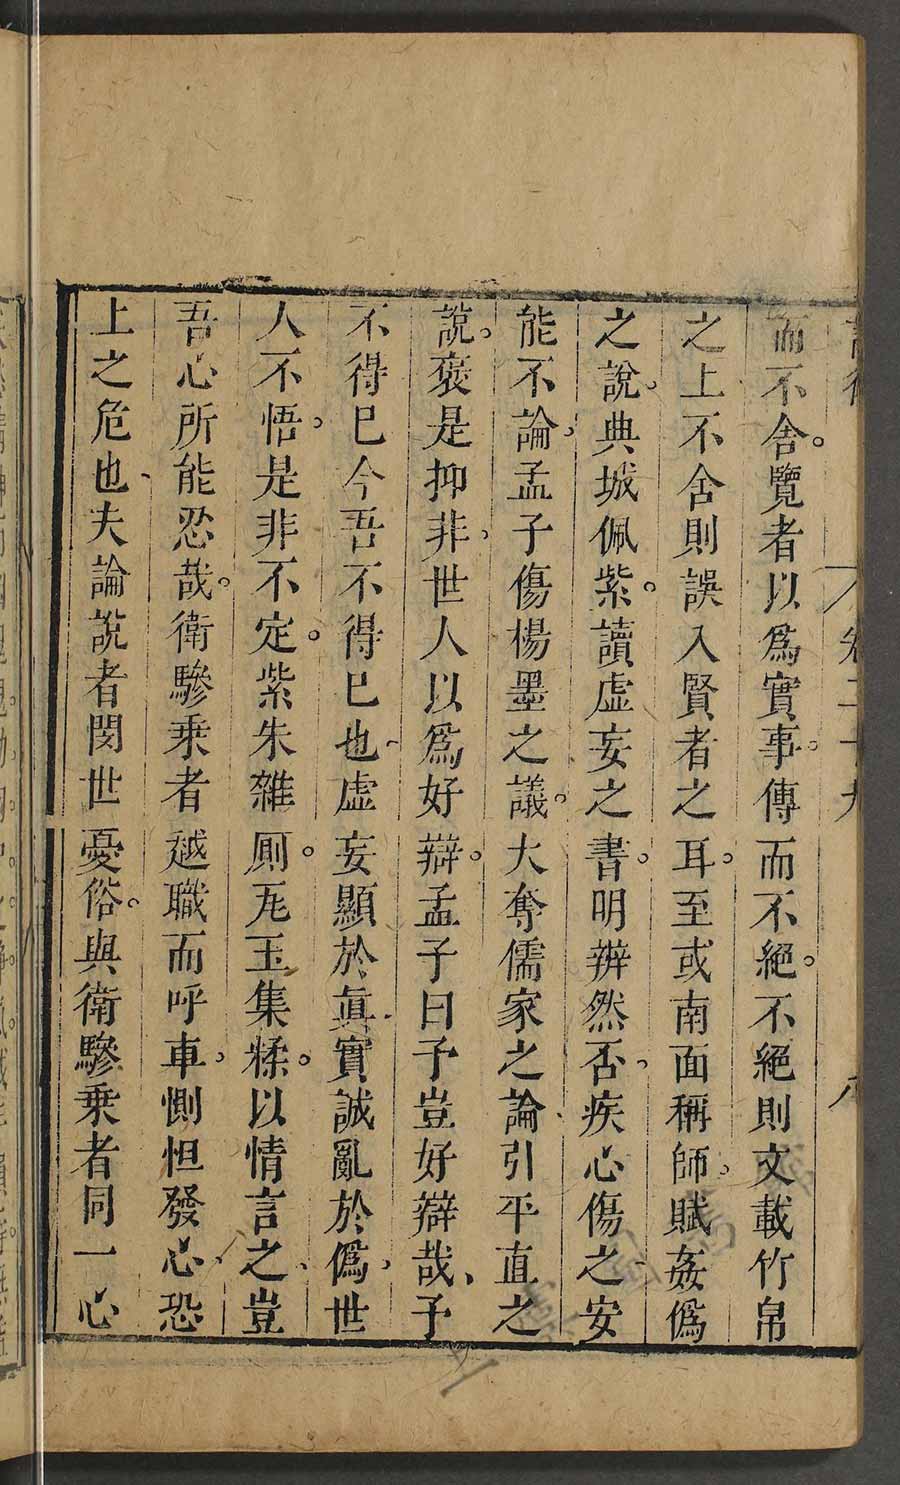 卷二十九
八
而不舍覽者以爲實事傳而不絕不絕則文載竹帛
之上不舍則誤入賢者之耳至或南面稱師賦姦僞
之說典城佩紫讀虛妄之書明辨然否疾心傷之安
能不論孟子傷楊墨之議大奪儒家之論引平直之
說褒是抑非世人以爲好辯孟子曰予豈好辯哉予
不得已今吾不得已也虛妄顯於眞實誠亂於僞世
人不悟是非不定紫朱雜厠瓦玉集糅以情言之豈
吾心所能忍哉衛驂乘者越職而呼車惻怛發心恐
上之危也夫論說者閔世憂俗與衛驂乘者同一心